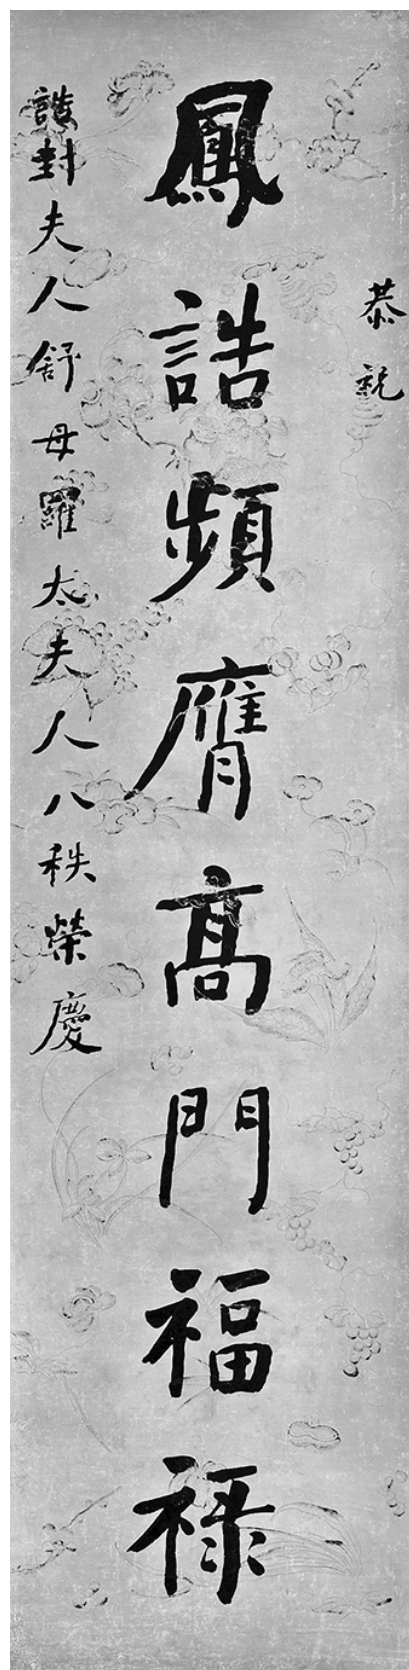 恭祝
鳳誥頻膺高門福祿
誥封夫人舒母羅太夫人八秩榮慶